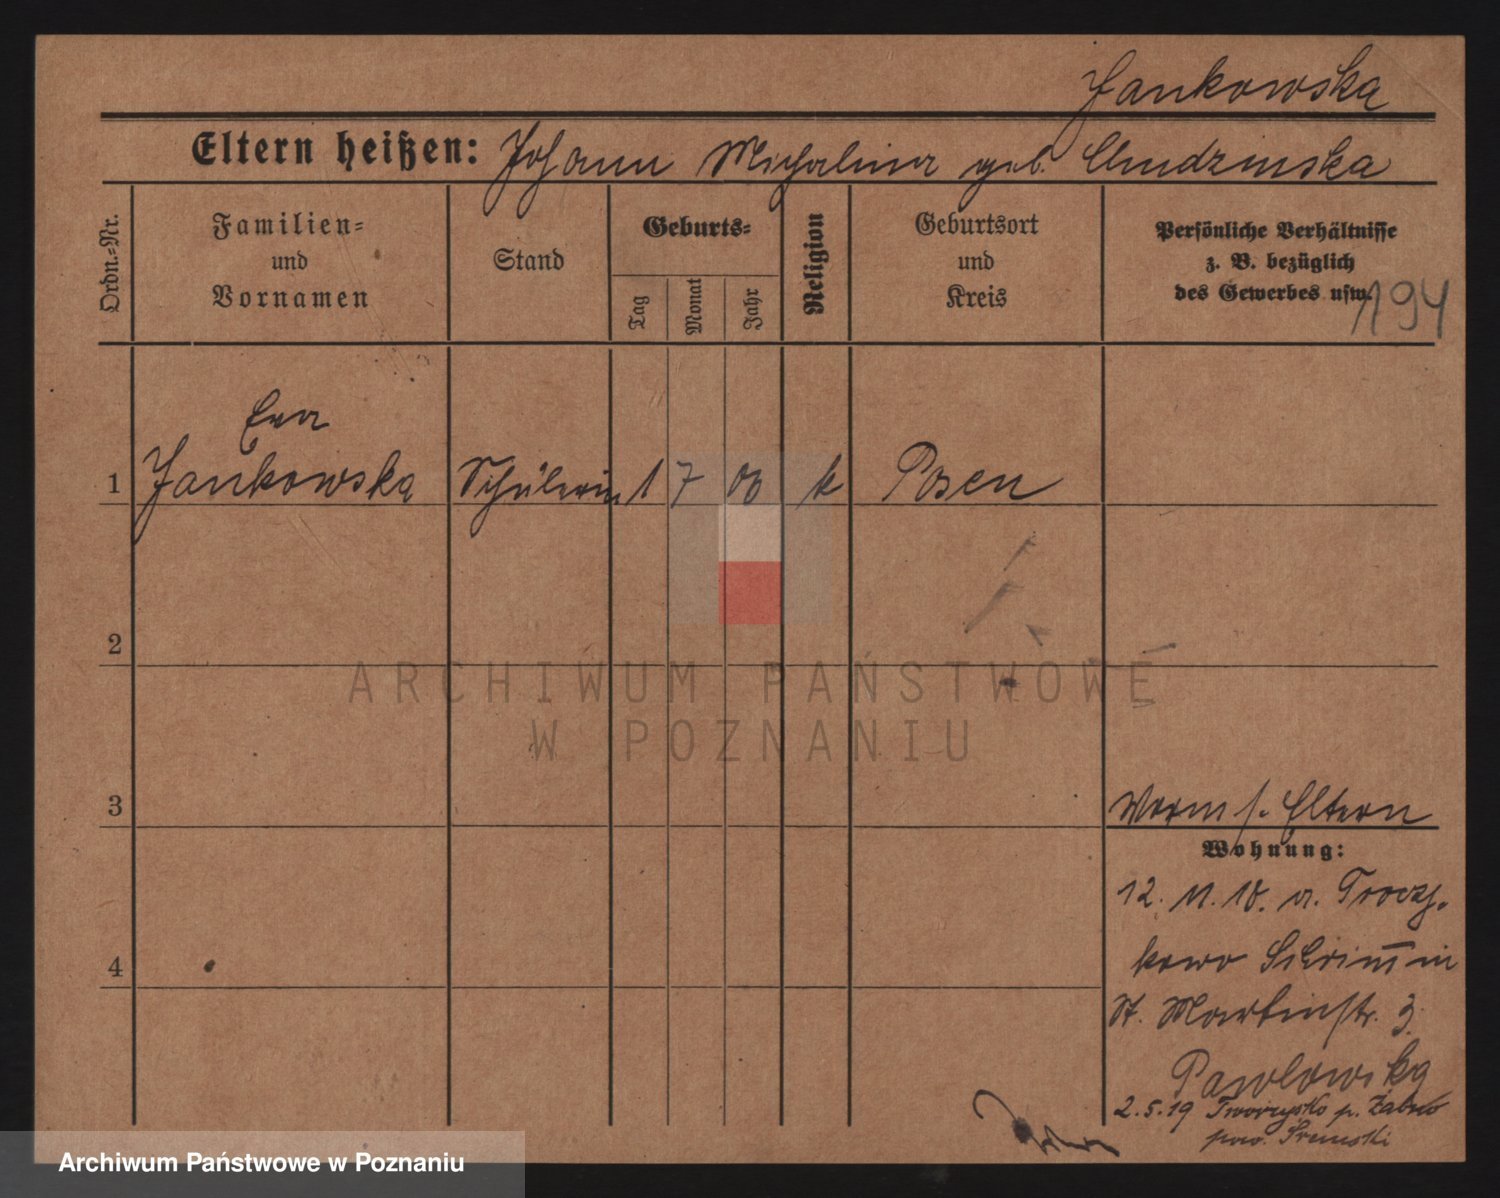 Jankowska
Eltern heißen: Johann Michalina geb. Chudzinska
Ordn.-Nr.
Familien-
und
Vornamen
Stand
Geburts-
Tag
Monat
Jahr
Religion
Geburtsort
und
Kreis
Persönliche Verhältnisse
z. B. bezüglich
des Gewerbes usw.
194
Eva
1 Jankowska Schülerin 1 7 00 k Posen
2
3
Worm s. Eltern
Wohnung:
12. 11. 18. a.
kowo Schrimm in
4
St. Martinstr. 3
Pawlowska
2.5.19 Tworzysko p. Żabno
pow. Śremski
ARCHIWUM PAŃSTWOWE
W POZNANIU
Archiwum Państwowe w Poznaniu